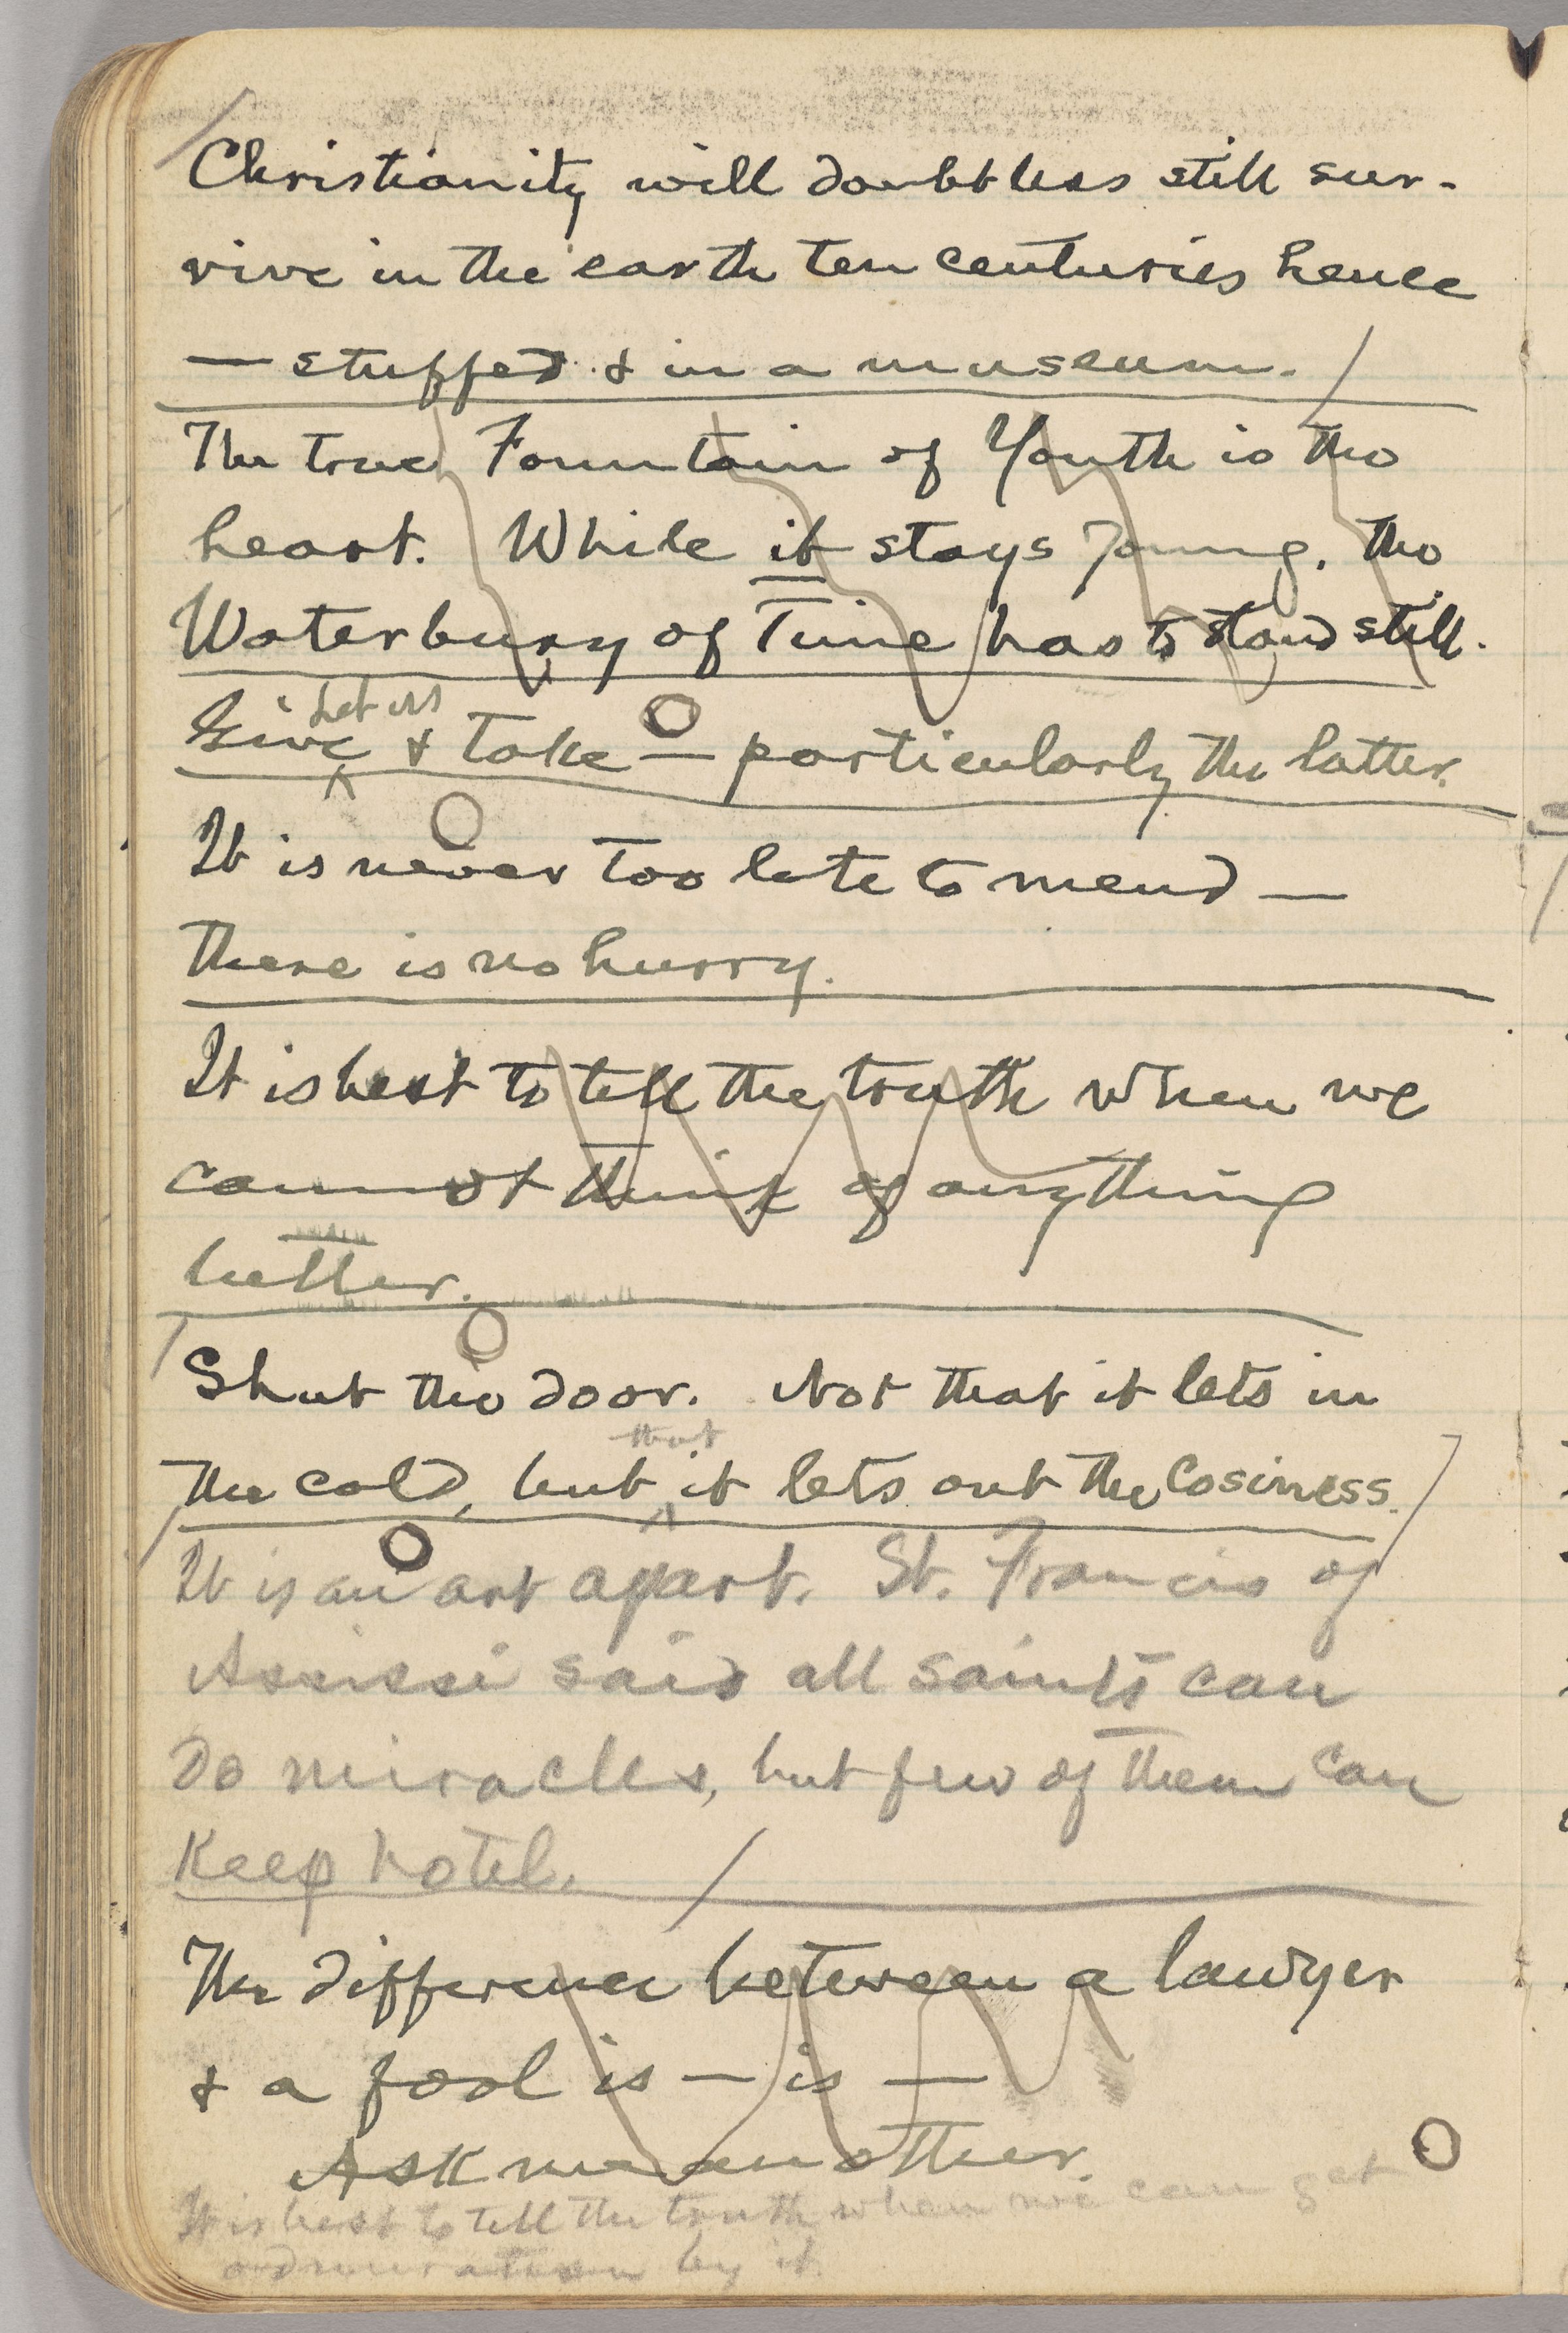 Christianity will doubtless still sur-
vive in the earth ten centuries hence
— stuffed & in a museum.
The true Fountain of Youth is the
heart. While it stays young, the
Waterbury of Time has to stand still.
let us
Give & take — particularly the latter.
It is never too late to mend —
there is no hurry.
It is best to tell the truth when we
cannot think of anything
better.
Shut the door. Not that it lets in
that
the cold, but it lets out the cosiness.
It is an art apart. St. Francis of
Assissi said all saints can
do miracles, but few of them can
keep hotel.
The difference between a lawyer
& a fool is — is —
Ask me another.
It is best to tell the truth when we can get
admiration by it.